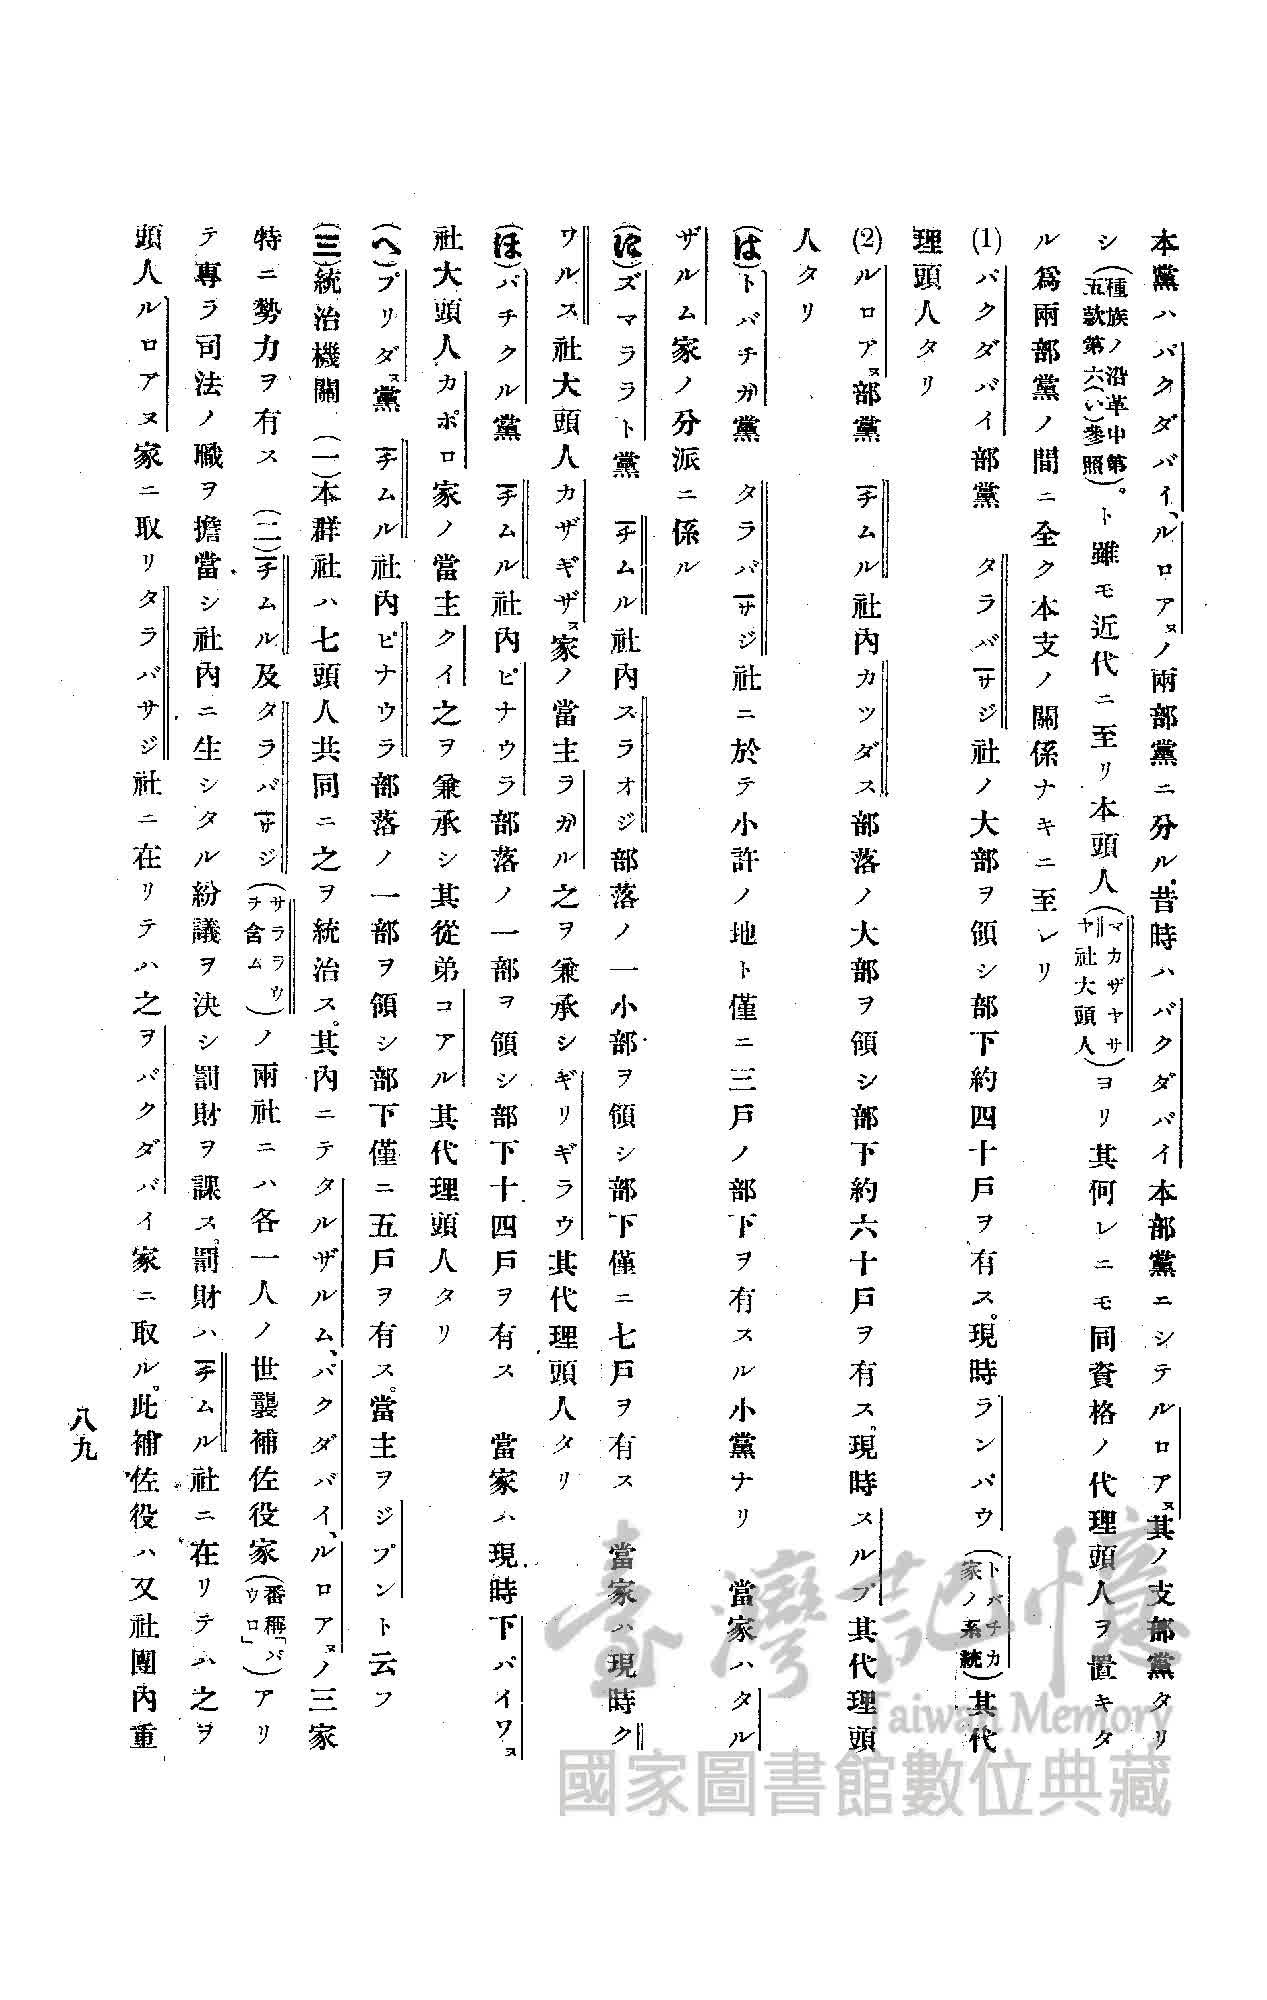 本黨ハパクダバイ、ルロアㇴノ兩部黨ニ分ル。昔時ハバクダバイ本部黨ニシテルロアㇴ其ノ支部黨タリ
シ(種族ノ沿革中第五款第六(い)參照)。ト雖モ近代ニ至リ本頭人(マカザヤサヤ社大頭人)ヨリ其何レニモ同資格ノ代理頭人ヲ置キタ
ル爲兩部黨ノ間ニ全ク本支ノ關係ナキニ至レリ
(1)パクダバイ部黨　タラバーサジ社ノ大部ヲ領シ部下約四十戶ヲ有ス。現時ランパウ(トバチカ家ノ系統)其代
理頭人タリ
(2)ルロアㇴ部黨　チムル社內カツダス部落ノ大部ヲ領シ部下約六十戶ヲ有ス。現時スルプ其代理頭
人タリ
(は)トバチガ黨　タラバーサジ社ニ於テ小許ノ地ト僅ニ三戶ノ部下ヲ有スル小黨ナリ　當家ハタル
ザルム家ノ分派ニ係ル
(に)ズマララト黨　チムル社內スラオジ部落ノ一小部ヲ領シ部下僅ニ七戶ヲ有ス　當家ハ現時ク
ワルス社大頭人カザギザㇴ家ノ當主ラガル之ヲ兼承シギリギラウ其代理頭人タリ
(ほ)バチクル黨　チムル社內ピナウラ部落ノ一部ヲ領シ部下十四戶ヲ有ス　當家ハ現時下パイワㇴ
社大頭人カポロ家ノ當主クイ之ヲ兼承シ其從弟コアル其代理頭人タリ
(へ)プリダㇴ黨　チムル社內ピナウラ部落ノ一部ヲ領シ部下僅ニ五戶ヲ有ス。當主ヲジプント云フ
(三)統治機關　(一)本群社ハ七頭人共同ニ之ヲ統治ス。其內ニテタルザルム、パクダバイ、ルロアㇴノ三家
特ニ勢力ヲ有ス　(二)チムル及タラバーサジ(サララウヲ含ム)ノ兩社ニハ各一人ノ世襲補佐役家(番稱「パウロ」)アリ
テ專ラ司法ノ職ヲ擔當シ社內ニ生シタル紛議ヲ決シ罰財ヲ課ス。罰財ハチムル社ニ在リテハ之ヲ
頭人ルロアヌ家ニ取リタラバサジ社ニ在リテハ之ヲパクダバイ家ニ取ル。此補佐役ハ又社團內重
八九
臺灣記憶
Taiwan Memory
國家圖書館數位典藏